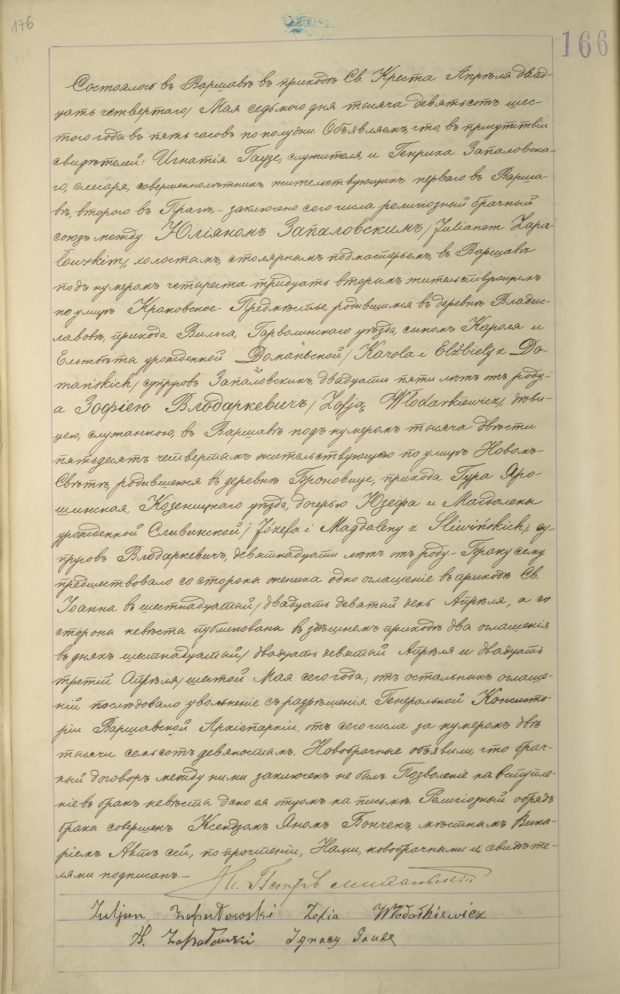 176
166
Состоялось въ Варшавѣ въ приходѣ Св. Креста Апрѣля двад-
цать четвертаго/ Мая седьмого дня тысяча девятьсотъ шес-
того года въ пять часовъ по полудни. Объявляемъ, что въ присутствіи
свидѣтелей: Игнатія Гаузе, служителя, и Генриха Запаловска-
го, слесаря, совершеннолѣтнихъ жительствующихъ перваго въ Варша-
вѣ, второго въ Прагѣ, – заключенъ сего числа религіозный брачный
союзъ между Юліяномъ Запаловскимъ, /Julianem Zapa-
łowskim/, холостымъ, столярнымъ подмастерьемъ, въ Варшавѣ
подъ нумеромъ четыреста тридцать вторымъ жительствующимъ
по улицѣ Краковское-Предмѣстье, родившимся въ деревнѣ Владис-
лавовъ, прихода Вильга, Гарволинскаго уѣзда, сыномъ Кароля и
Ельжбѣты урожденной Доманьской/ Karola i Elżbiety z Do-
mańskich/ супруговъ Запаловскихъ, двадцати пяти лѣтъ отъ роду –
а Зофіею Влодаркевичъ /Zofją Włodarkiewicz/, дѣви-
цею, служанкою, въ Варшавѣ подъ нумеромъ тысяча двѣсти
пятьдесятъ четвертымъ жительствующею по улицѣ Новомъ-
Свѣтѣ, родившеюся въ деревнѣ Броновице, прихода Гура Яро-
шинская, Козеницкаго уѣзда, дочерью Юзефа и Магдалены
урожденной Сливинской/ Józefa i Magdaleny z Śliwińskich/, су-
пруговъ Влодаркевичъ, девятнадцати лѣтъ отъ роду – Браку сему
предшествовало со стороны жениха одно оглашеніе въ приходѣ Св.
Іоанна въ шестнадцатый/ двадцать девятый день Апрѣля, а со
стороны невѣсты публикованы въ здѣшнемъ приходѣ два оглашенія
въ дняхъ шестнадцатый/ двадцать девятый Апрѣля и двадцать
третій Апрѣля/ шестой Мая сего года; отъ остальныхъ оглаше-
ній послѣдовало увольненіе съ разрѣшенія Генеральной Консисто-
ріи Варшавской Архіепархіи, отъ сего числа за нумеромъ двѣ
тысячи семьсотъ девяностымъ. Новобрачные объявили, что брач-
ный договоръ между ними заключенъ не былъ. Позволеніе на вступле-
ніе въ бракъ невѣста дано ея отцомъ на письмѣ. Религіозный обрядъ
брака совершенъ Ксендзомъ Яномъ Бончекъ, мѣстнымъ Вика-
ріемъ. Актъ сей, по прочтеніи, Нами, новобрачными и свидѣте-
лями подписанъ. –
Кс. Петръ
Juljan Zapałowski Zofia Włodarkiewicz
H. Zapałowski Ignacy Gauze